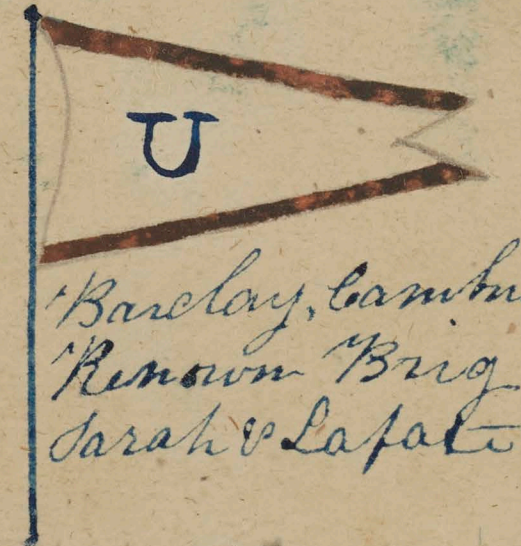 U
Barclay, Cambr
Renown Brig
Sarah & Lafa